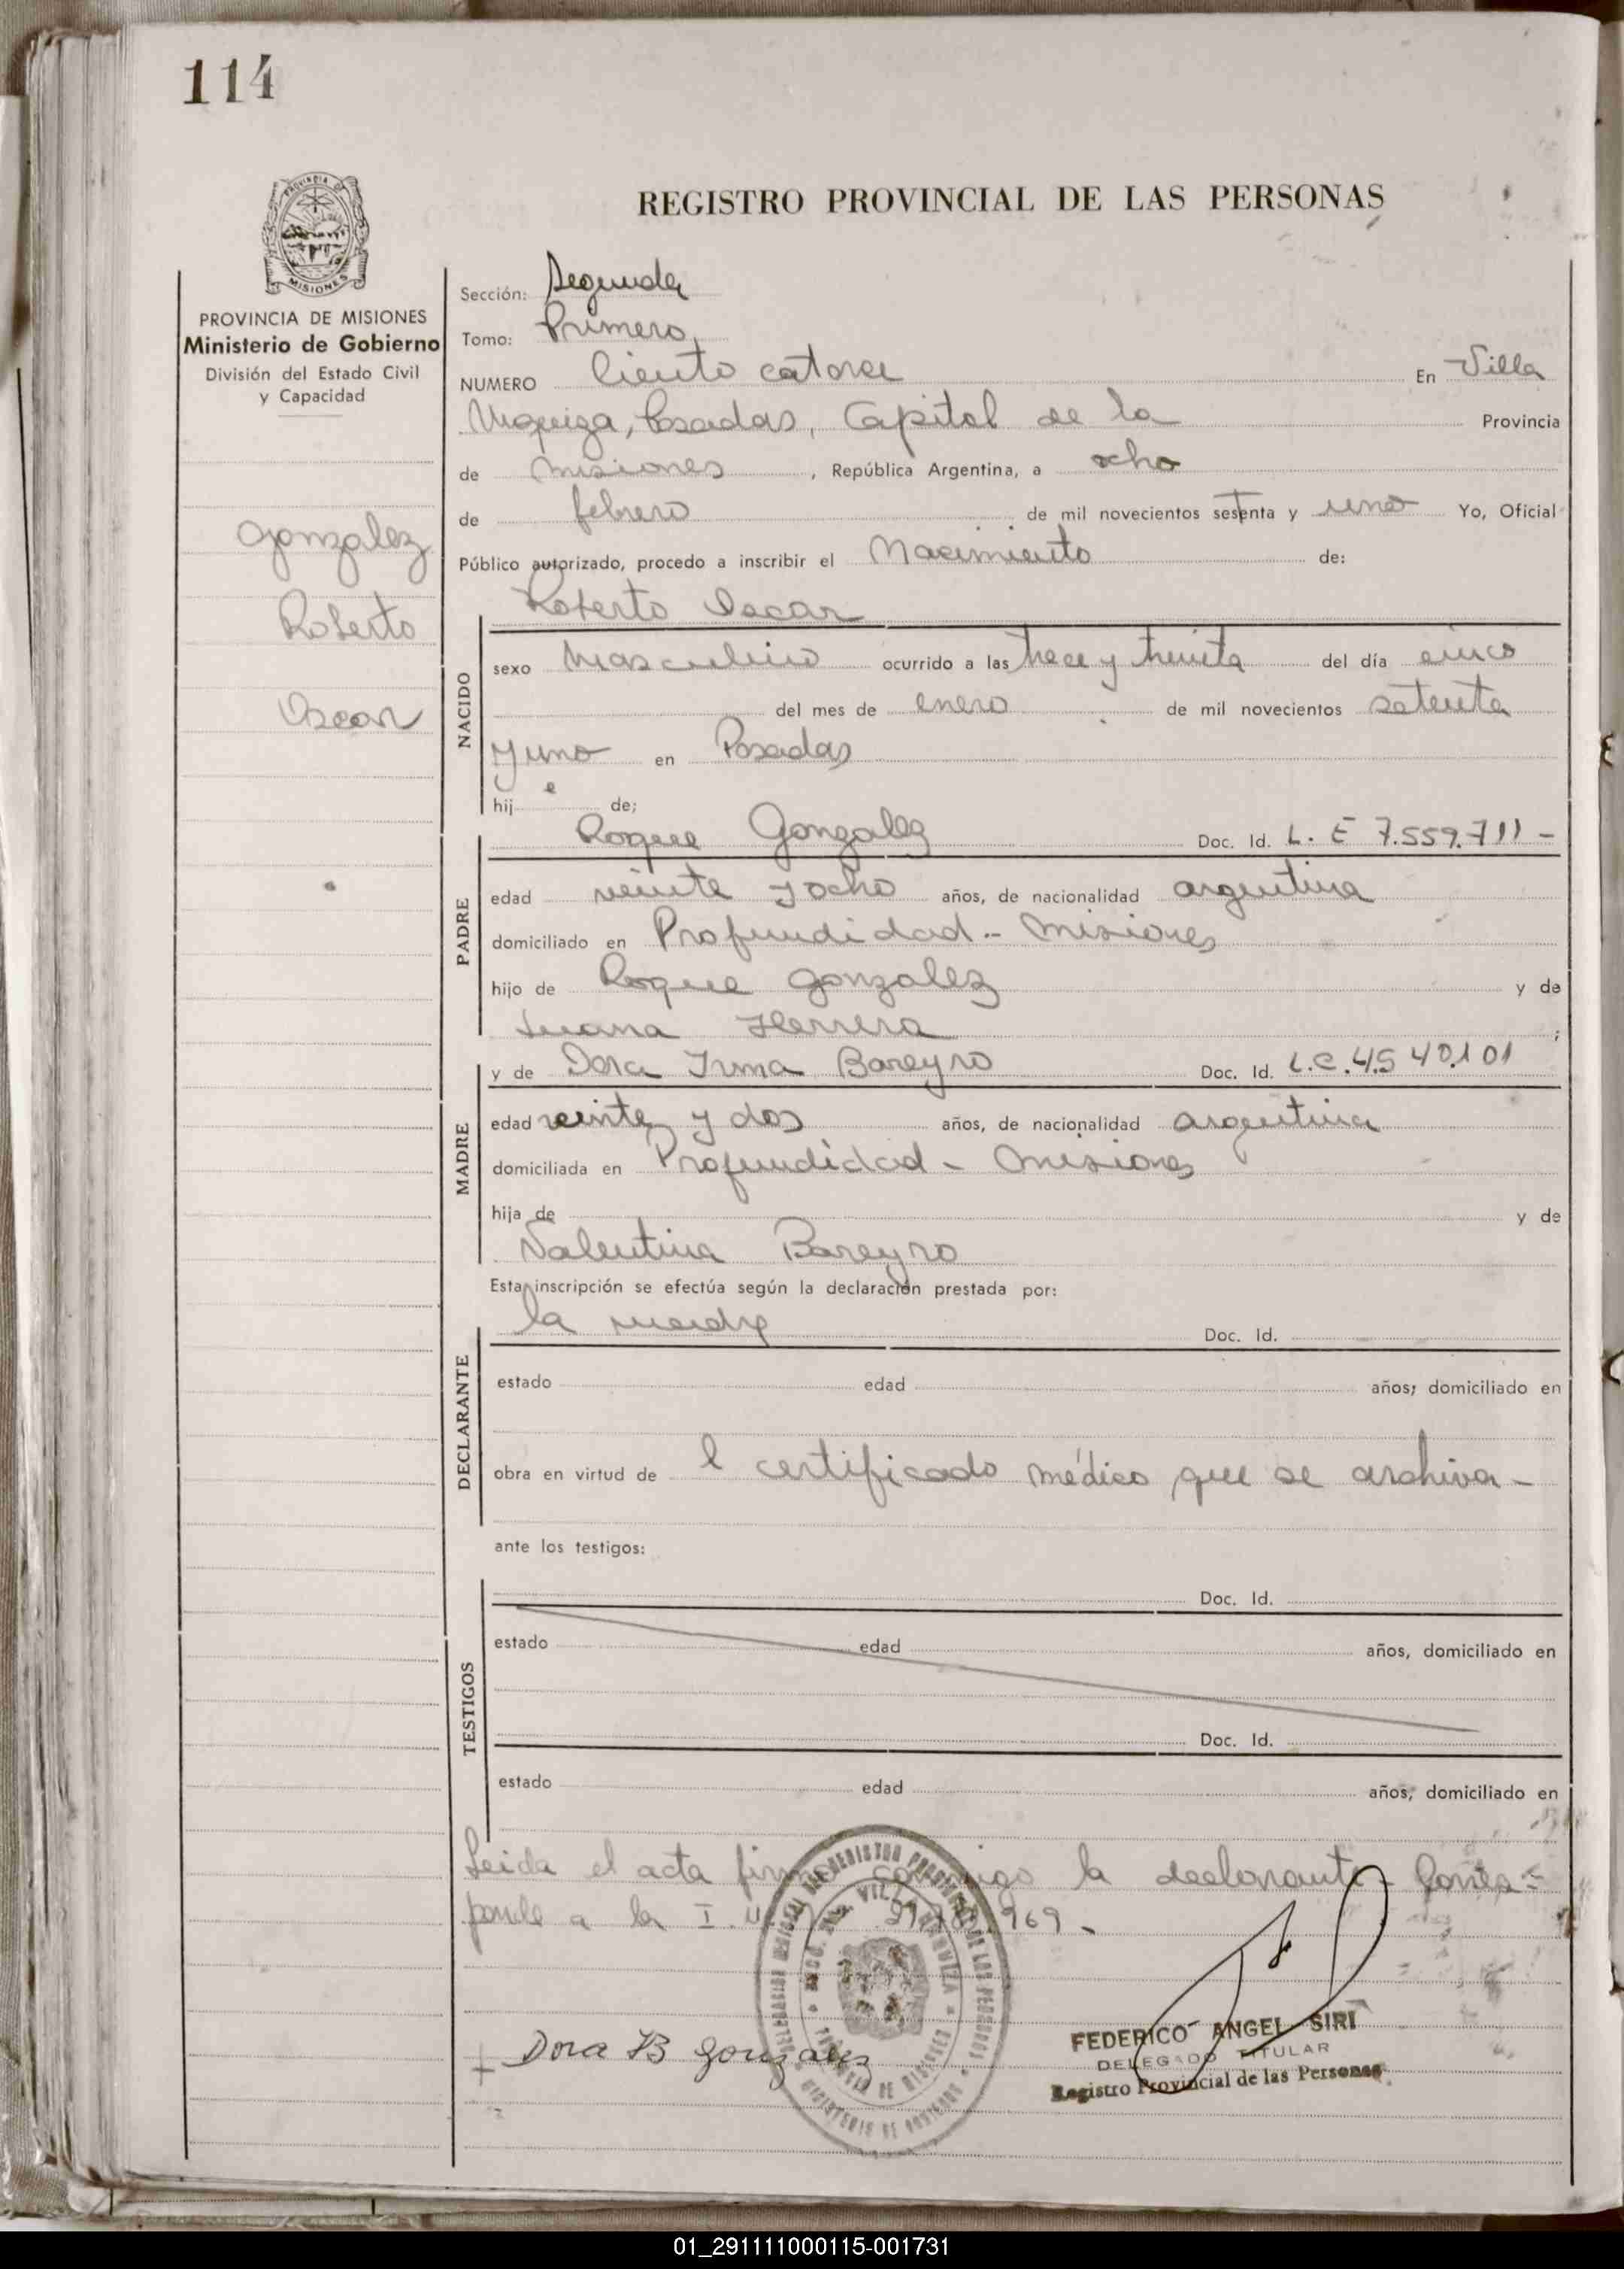 114
PROVINCIA DE
MISIONES
REGISTRO PROVINCIAL DE LAS PERSONAS
PROVINCIA DE MISIONES
Ministerio de Gobierno
División del Estado Civil
y Capacidad
Gonzalez
Roberto
Oscar
Sección: Segunda
Tomo: Primero
NUMERO Ciento catorce En Villa
Urquiza, Posadas, Capital de la Provincia
de Misiones, República Argentina, a ocho
de febrero de mil novecientos setenta y uno Yo, Oficial
Público autorizado, procedo a inscribir el Nacimiento de:
Roberto Oscar
NACIDO
sexo Masculino ocurrido a las trece y treinta del día cinco
del mes de enero de mil novecientos setenta
y uno en Posadas
hij de;
PADRE
Roque Gonzalez Doc. Id. L. E 7.559.711 -
edad veinte y ocho años, de nacionalidad argentina
domiciliado en Profundidad - Misiones
hijo de Roque Gonzalez y de
Juana Herrera ;
MADRE
y de Dora Irma Bareyro Doc. Id. L.C.4.540.101
edad veinte y dos años, de nacionalidad argentina
domiciliada en Profundidad - Misiones
hija de y de
Valentina Bareyro
Esta inscripción se efectúa según la declaración prestada por:
DECLARANTE
la madre Doc. Id.
estado edad años; domiciliado en
obra en virtud de l certificado médico que se archiva -
ante los testigos:
TESTIGOS
Doc. Id.
estado edad años, domiciliado en
Doc. Id.
estado edad años, domiciliado en
Leida el acta firma conmigo la declarante - Corres=
ponde a la I.
Dora B Gonzalez
FEDERICO ANGEL SIRI
DELEGADO TITULAR
Registro Provincial de las Personas
01_291111000115-001731